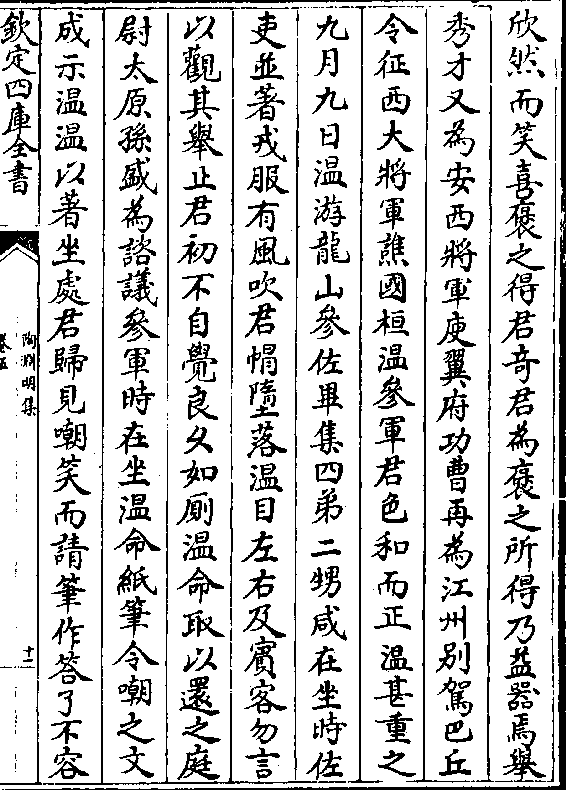 欣然而笑喜褒之得君奇君為褒之所得乃益器焉舉
秀才又為安西將軍庾翼府功曹再為江州别駕巴丘
令征西大將軍譙國桓温參軍君色和而正温甚重之
九月九日温游龍山參佐畢集四弟二甥咸在坐時佐
吏並著戎服有風吹君帽墮落温目左右及賓客勿言
以觀其舉止君初不自覺良久如厠温命取以還之庭
尉太原孫盛為諮議參軍時在坐温命紙筆令嘲之文
成示温温以著坐處君歸見嘲笑而請筆作答了不容
欽定四庫全書
陶淵明集
卷五
十二